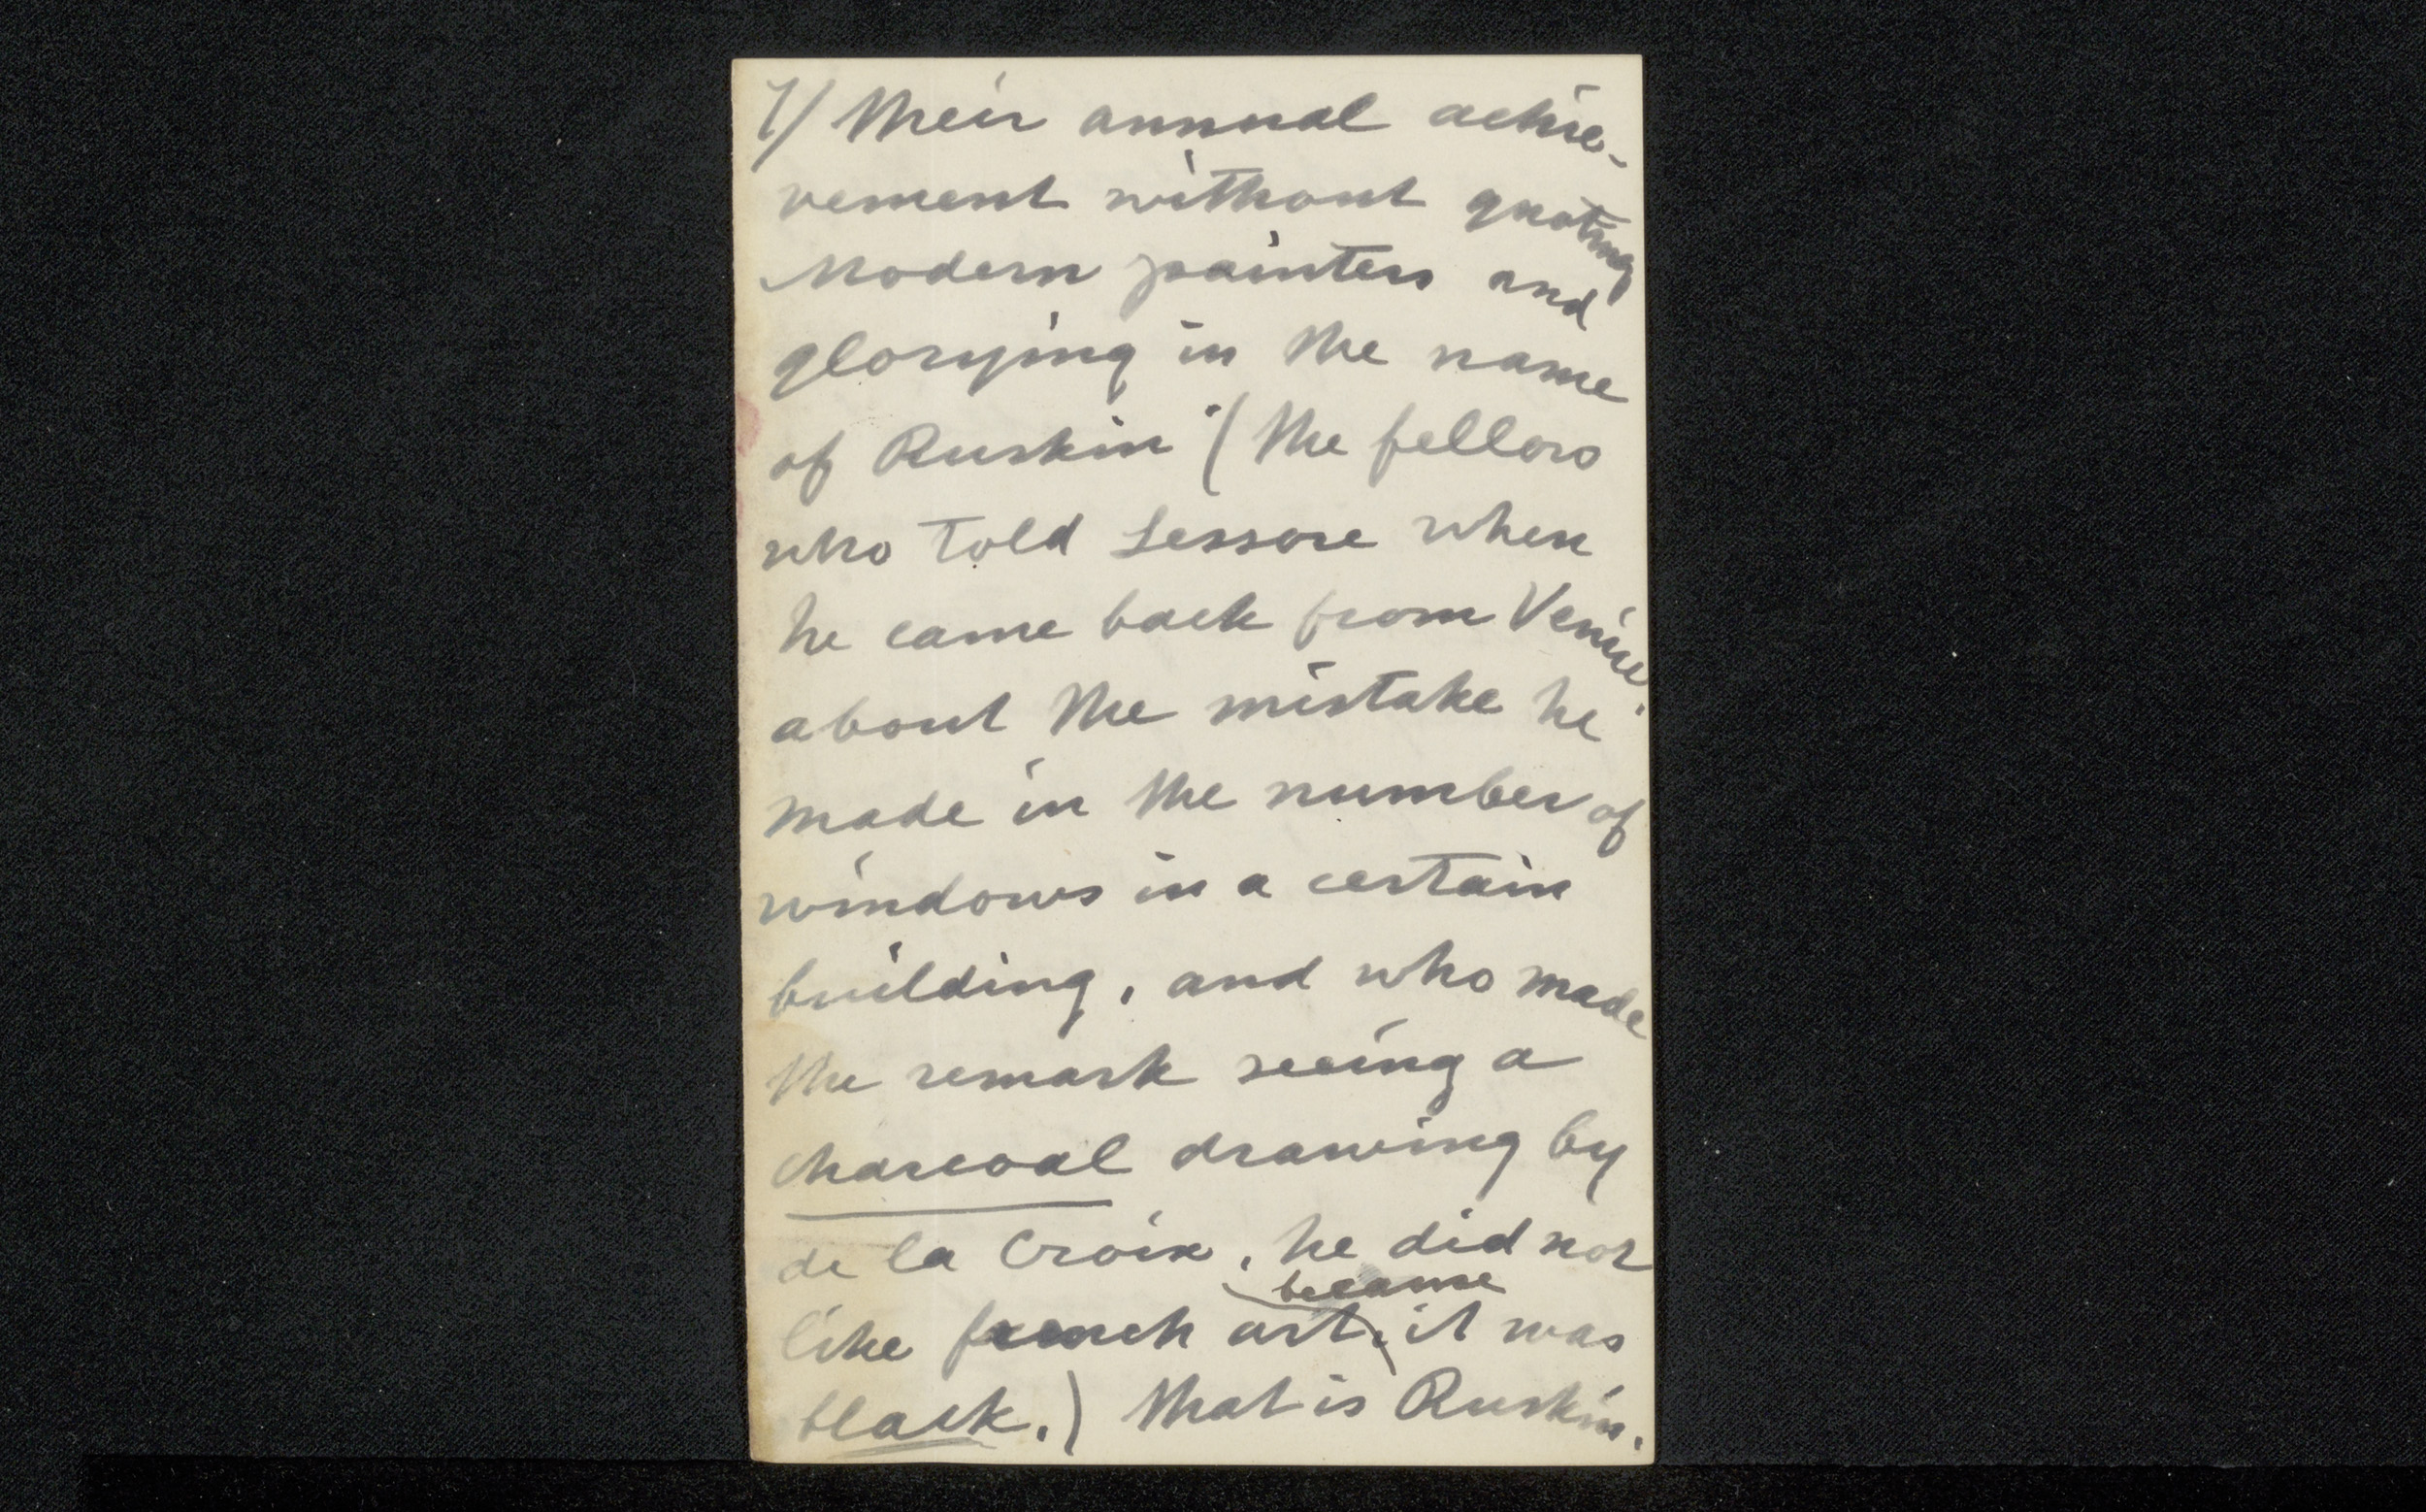 7/ Their annual achie-
vement without quoting
Modern painters and
glorying in the name
of Ruskin (the fellow
who told Lessore when
he came back from Venice.
about the mistake he
made in the number of
windows in a certain
building, and who made
the remark seeing a
charcoal drawing by
de la Croix, he did not
because
like french art, it was
black.) That is Ruskin.